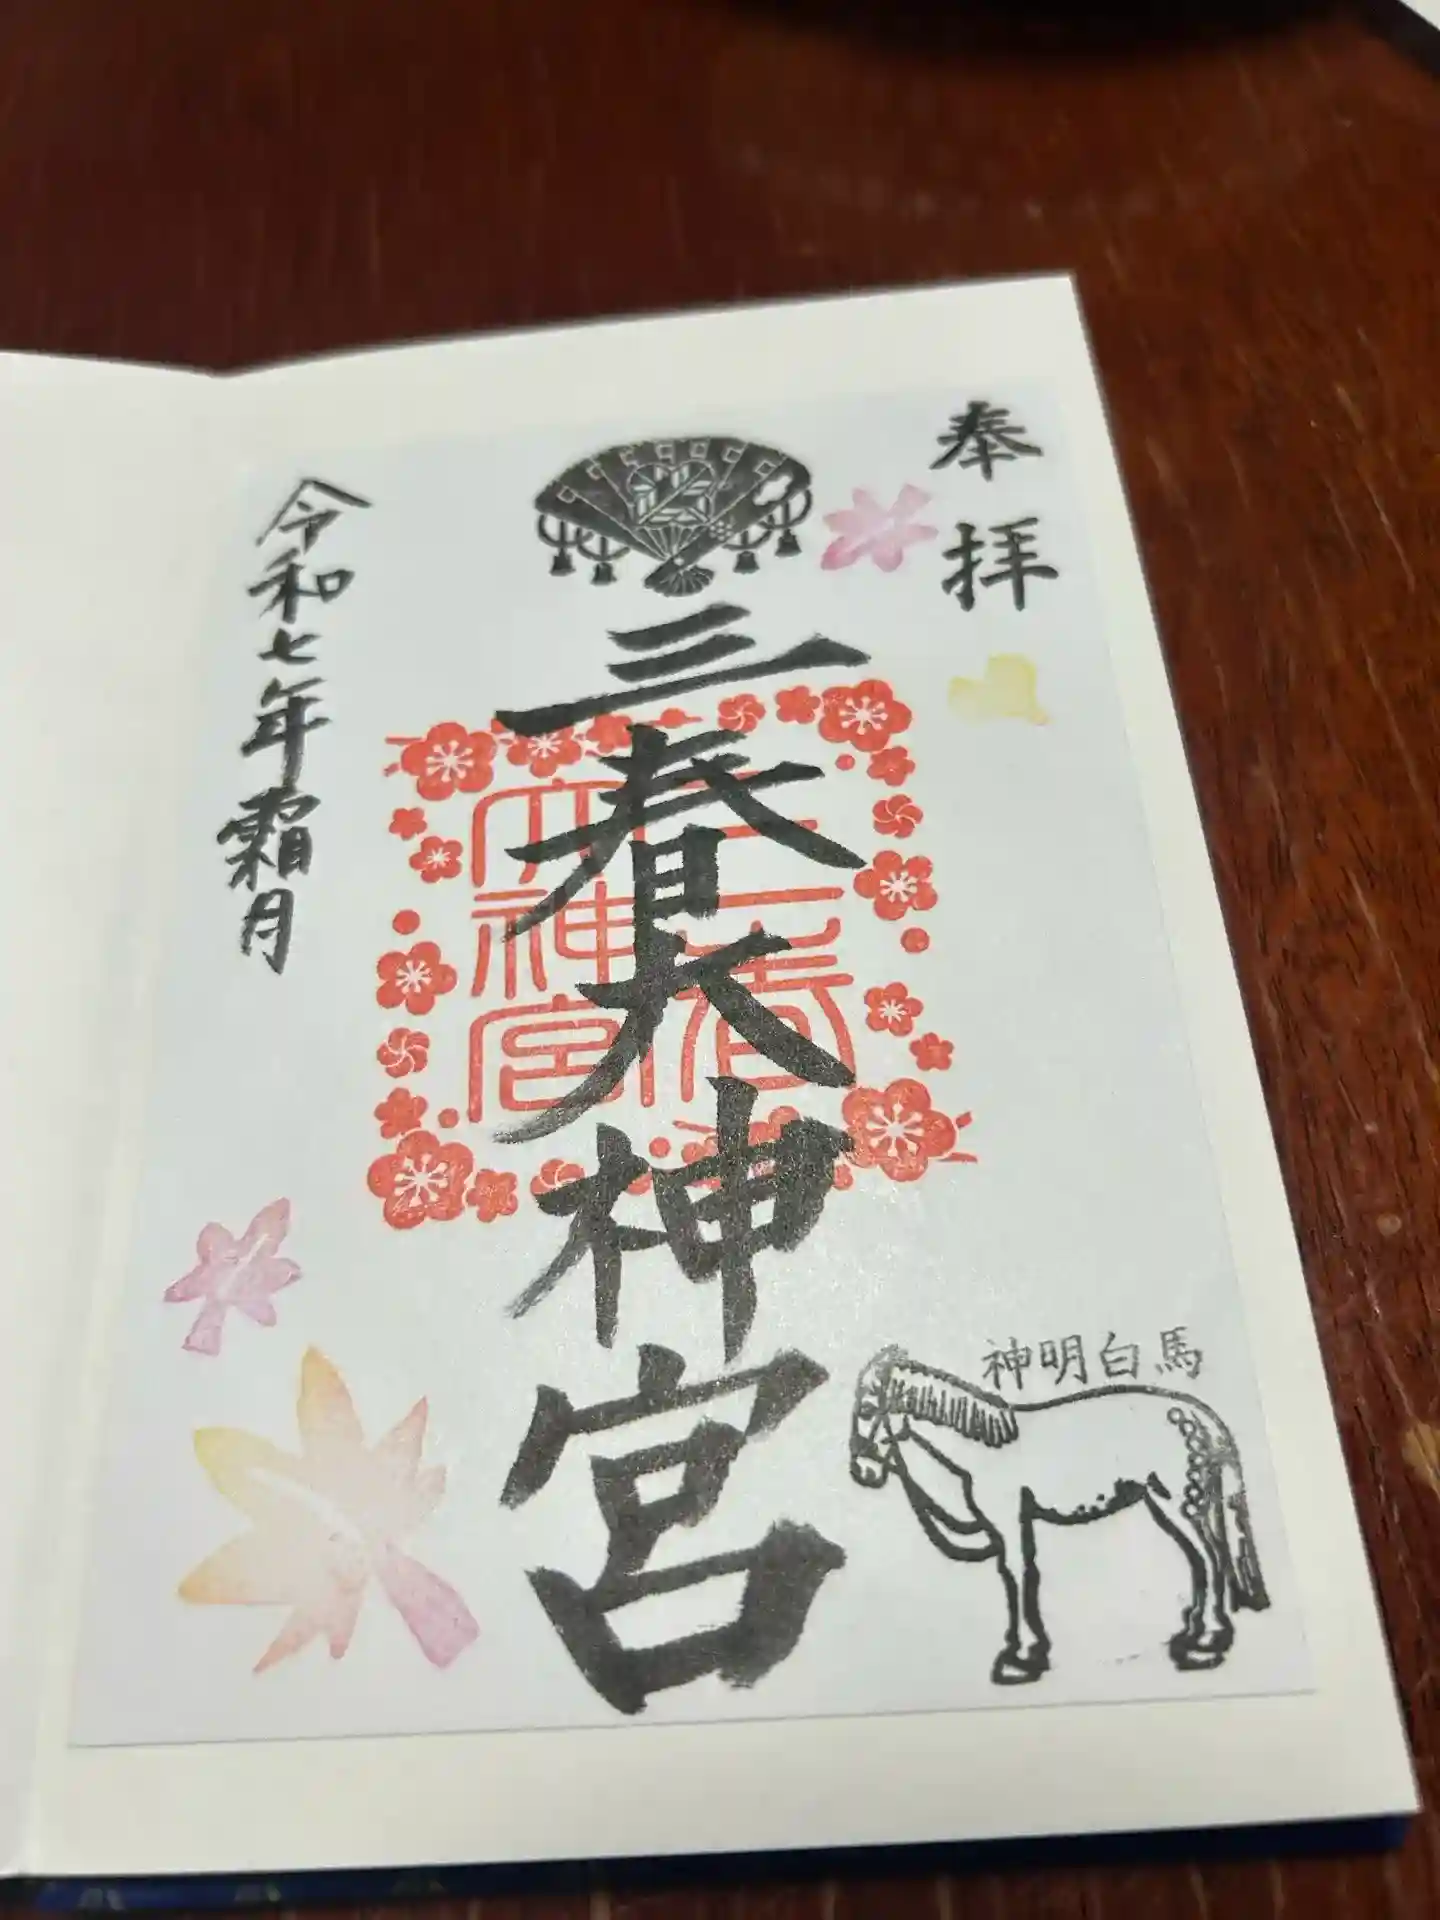 奉拝
三春大神宮
三春
大神宮
令和七年霜月
神明白馬